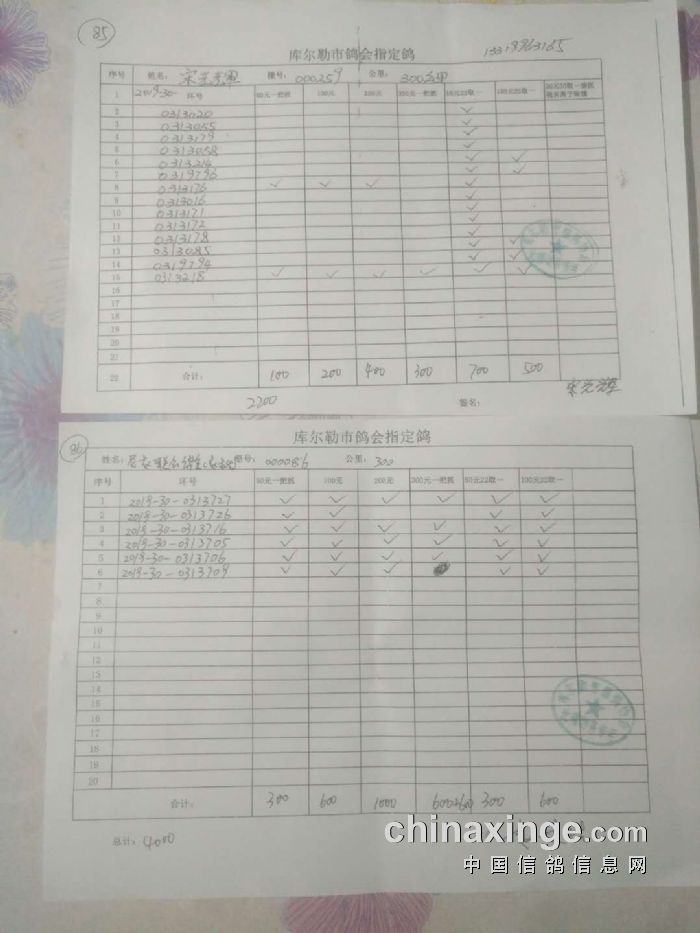 85
库尔勒市鸽会指定鸽
序号 姓名: 棚号: 000259 公里: 300公里
1 2019-30- 环号 50元一把抓 100元 200元 300元一把抓 50元22取一 100元22取一
2 0313020 ✓
3 0313055 ✓
4 0313179 ✓
5 0313058 ✓
6 0313214 ✓ ✓
7 0319796 ✓ ✓
8 0313176 ✓ ✓ ✓ ✓
9 0313016 ✓
10 0313171 ✓
11 0313172 ✓
12 0313178 ✓ ✓
13 0313085 ✓ ✓
14 0319794 ✓
15 0313218 ✓ ✓ ✓ ✓ ✓ ✓
16
17
18
19
20
21
22 合计: 100 200 400 300 700 500
2200 签名:
86
库尔勒市鸽会指定鸽
姓名: 棚号: 000086 公里: 300
序号 环号 50元一把抓 100元 200元 300元一把抓 50元22取一 100元22取一
1 2019-30-0313727 ✓ ✓ ✓ ✓ ✓ ✓
2 2019-30-0313726 ✓ ✓ ✓ ✓
3 2019-30-0313716 ✓ ✓ ✓ ✓ ✓ ✓
4 2019-30-0313705 ✓ ✓ ✓ ✓ ✓ ✓
5 2019-30-0313706 ✓ ✓ ✓ ✓ ✓ ✓
6 2019-30-0313709 ✓ ✓ ✓ ✓ ✓
7
8
9
10
11
12
13
14
15
16
17
18
19
20
合计: 300 600 1000 300 600
总计: 4000
chinaxinge.com
中国信鸽信息网